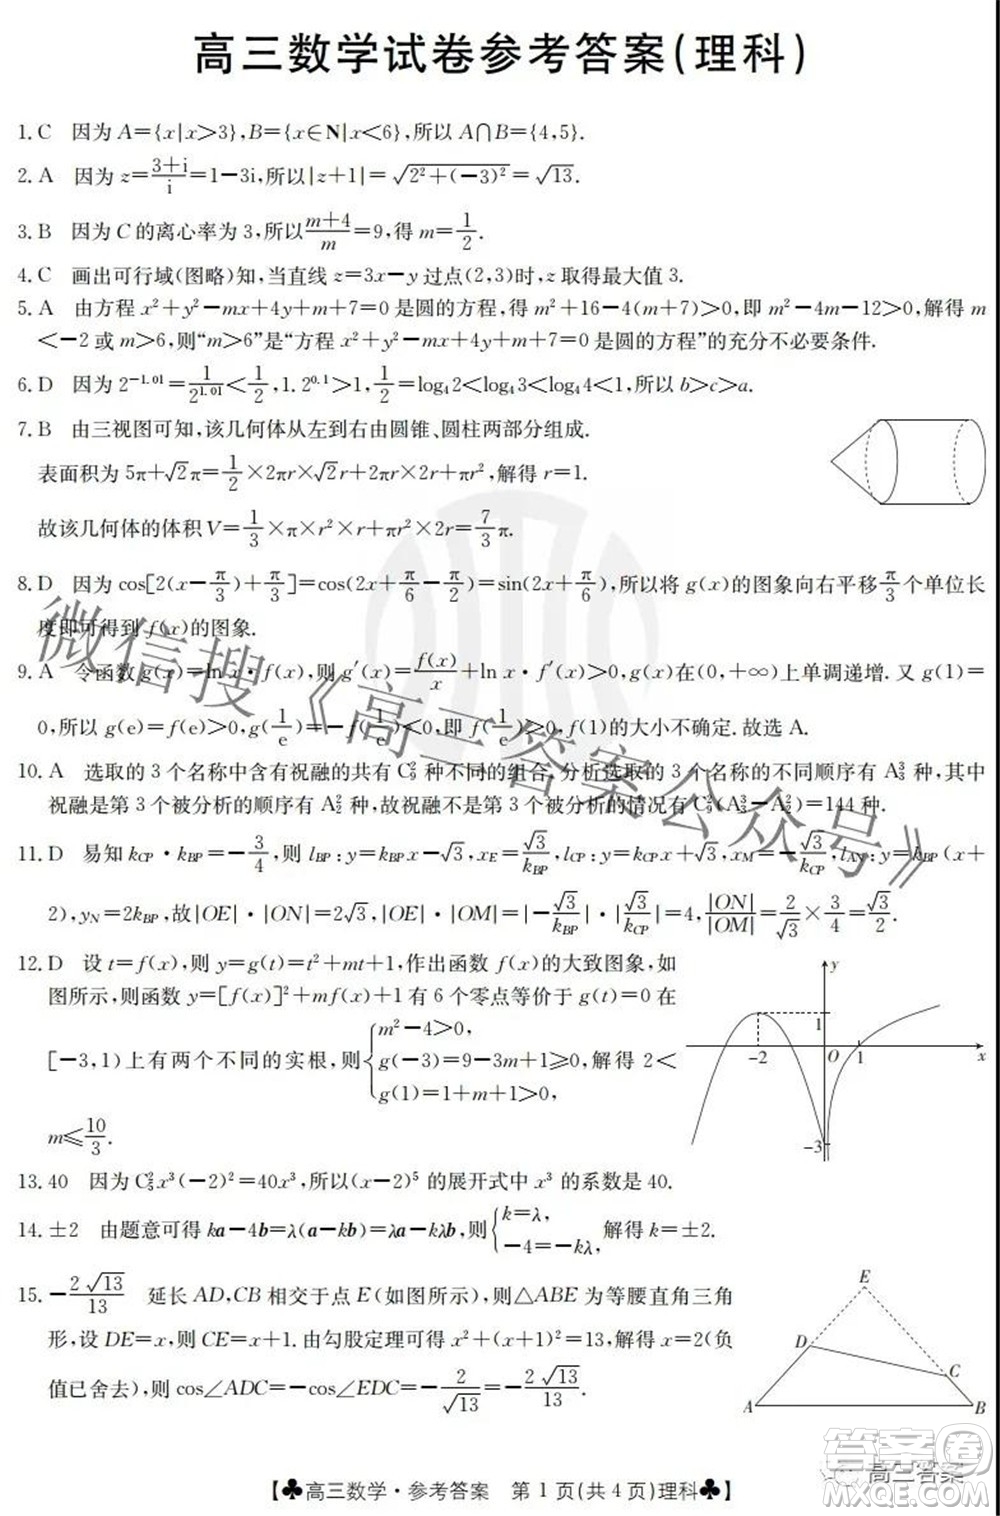 高三数学试卷参考答案(理科)
1. C　因为 A={x|x>3},B={x∈N|x<6},所以 A∩B={4,5}.
2. A　因为 z=\frac{3+i}{i}=1-3i,所以|z+1|=\sqrt{2^2+(-3)^2}=\sqrt{13}.
3. B　因为 C 的离心率为 3,所以\frac{m+4}{m}=9,得 m=\frac{1}{2}.
4. C　画出可行域(图略)知,当直线 z=3x-y 过点(2,3)时,z 取得最大值 3.
5. A　由方程 x²+y²-mx+4y+m+7=0 是圆的方程,得 m²+16-4(m+7)>0,即 m²-4m-12>0,解得 m
<-2 或 m>6,则“m>6”是“方程 x²+y²-mx+4y+m+7=0 是圆的方程”的充分不必要条件.
6. D　因为 2^{-1.01}=\frac{1}{2^{1.01}}<\frac{1}{2},1.2^{0.1}>1,\frac{1}{2}=log₄2<log₄3<log₄4=1,所以 b>c>a.
7. B　由三视图可知,该几何体从左到右由圆锥、圆柱两部分组成.
表面积为 5π+\sqrt{2}π=\frac{1}{2}×2πr×\sqrt{2}r+2πr×2r+πr²,解得 r=1.
故该几何体的体积 V=\frac{1}{3}×π×r²×r+π×r²×2r=\frac{7}{3}π.
8. D　因为 cos[2(x-\frac{π}{3})+\frac{π}{3}]=cos(2x+\frac{π}{6}-\frac{π}{2})=sin(2x+\frac{π}{6}),所以将 g(x)的图象向右平移\frac{π}{3}个单位长
度即可得到 f(x)的图象.
9. A　令函数 g(x)=ln x·f(x),则 g′(x)=\frac{f(x)}{x}+ln x·f′(x)>0,g(x)在(0,+∞)上单调递增. 又 g(1)=
0,所以 g(e)=f(e)>0,g(\frac{1}{e})=-f(\frac{1}{e})<0,即 f(\frac{1}{e})>0,f(1)的大小不确定. 故选 A.
10. A　选取的 3 个名称中含有祝融的共有 C_9^2 种不同的组合,分析选取的 3 个名称的不同顺序有 A_3^3 种,其中
祝融是第 3 个被分析的顺序有 A_2^2 种,故祝融不是第 3 个被分析的情况有 C_9^2(A_3^3-A_2^2)=144 种.
11. D　易知 k_{CP}·k_{BP}=-\frac{3}{4},则 l_{BP}:y=k_{BP}x-\sqrt{3},x_E=\frac{\sqrt{3}}{k_{BP}},l_{CP}:y=k_{CP}x+\sqrt{3},x_M=-\frac{\sqrt{3}}{k_{CP}},l_{AN}:y=k_{BP}(x+
2),y_N=2k_{BP},故|OE|·|ON|=2\sqrt{3},|OE|·|OM|=|-\frac{\sqrt{3}}{k_{BP}}|·|\frac{\sqrt{3}}{k_{CP}}|=4,\frac{|ON|}{|OM|}=\frac{2}{\sqrt{3}}×\frac{3}{4}=\frac{\sqrt{3}}{2}.
12. D　设 t=f(x),则 y=g(t)=t²+mt+1,作出函数 f(x)的大致图象,如
图所示,则函数 y=[f(x)]²+mf(x)+1 有 6 个零点等价于 g(t)=0 在
[-3,1)上有两个不同的实根,则{m²-4>0,
g(-3)=9-3m+1≥0,解得 2<
g(1)=1+m+1>0,
m≤\frac{10}{3}.
y
1
-2
O
1
x
-3
13. 40　因为 C_5^2x³(-2)²=40x³,所以(x-2)⁵ 的展开式中 x³ 的系数是 40.
14. ±2　由题意可得 ka-4b=λ(a-kb)=λa-kλb,则{k=λ,
-4=-kλ, 解得 k=±2.
15. -\frac{2\sqrt{13}}{13}　延长 AD,CB 相交于点 E(如图所示),则△ABE 为等腰直角三角
形,设 DE=x,则 CE=x+1. 由勾股定理可得 x²+(x+1)²=13,解得 x=2(负
值已舍去),则 cos∠ADC=-cos∠EDC=-\frac{2}{\sqrt{13}}=-\frac{2\sqrt{13}}{13}.
E
D
C
A
B
【♣高三数学·参考答案　第 1 页(共 4 页)理科♣】
微信搜《高三答案公众号》
高三答案
答案圈
MXQE.COM